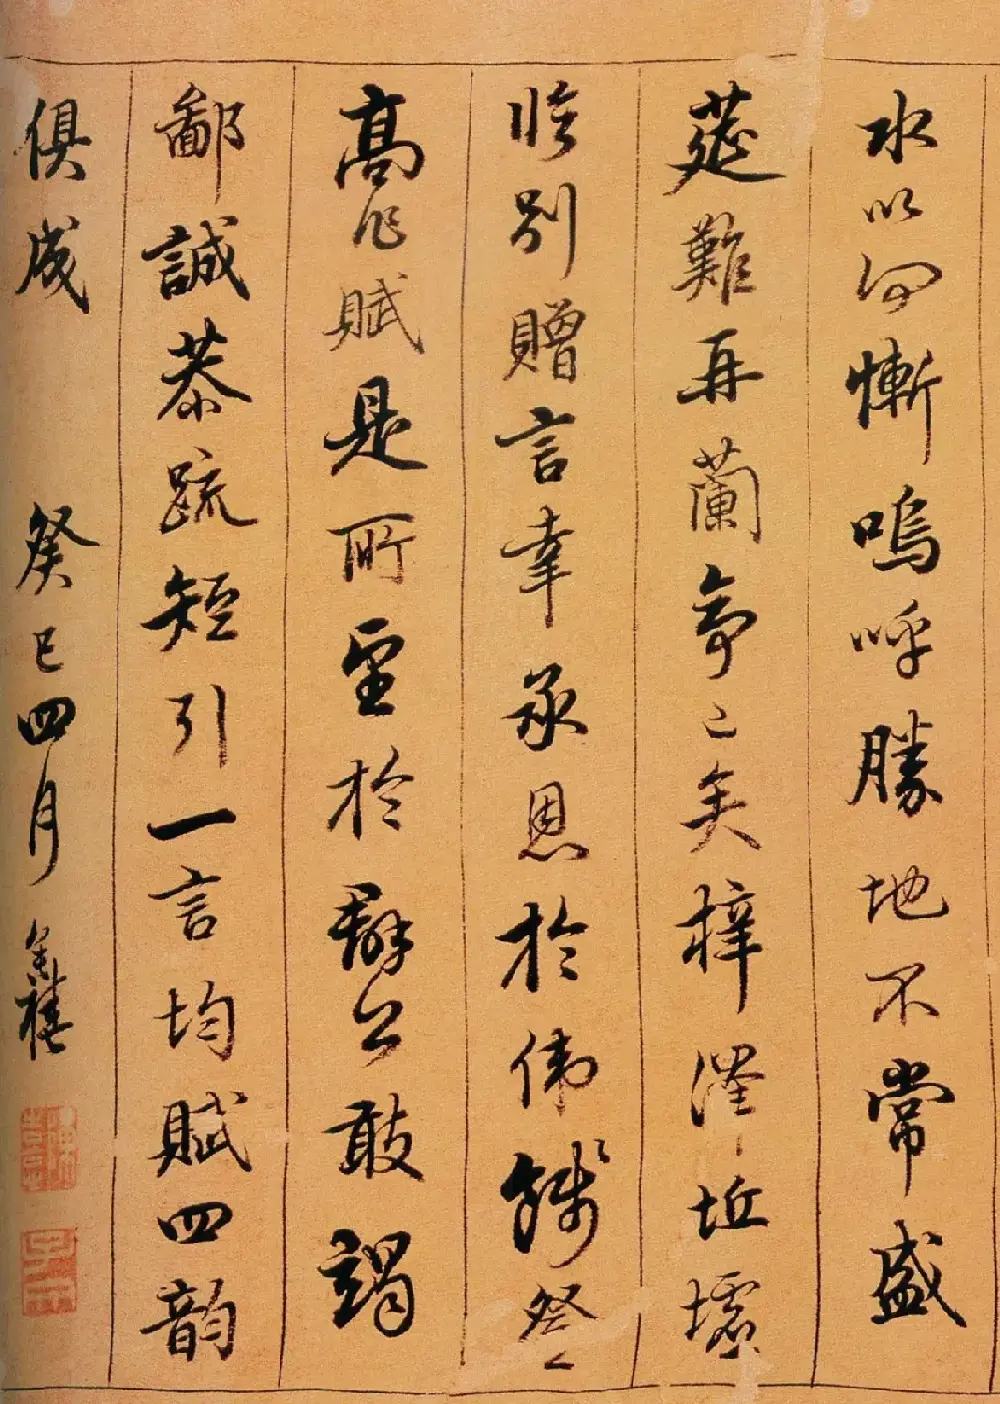 水以何慚嗚呼勝地不常盛
筵難再蘭亭已矣梓澤坵墟
臨別贈言幸承恩於偉餞登
高作賦是所望於群公敢竭
鄙誠恭疏短引一言均賦四韻
俱成 癸巳四月